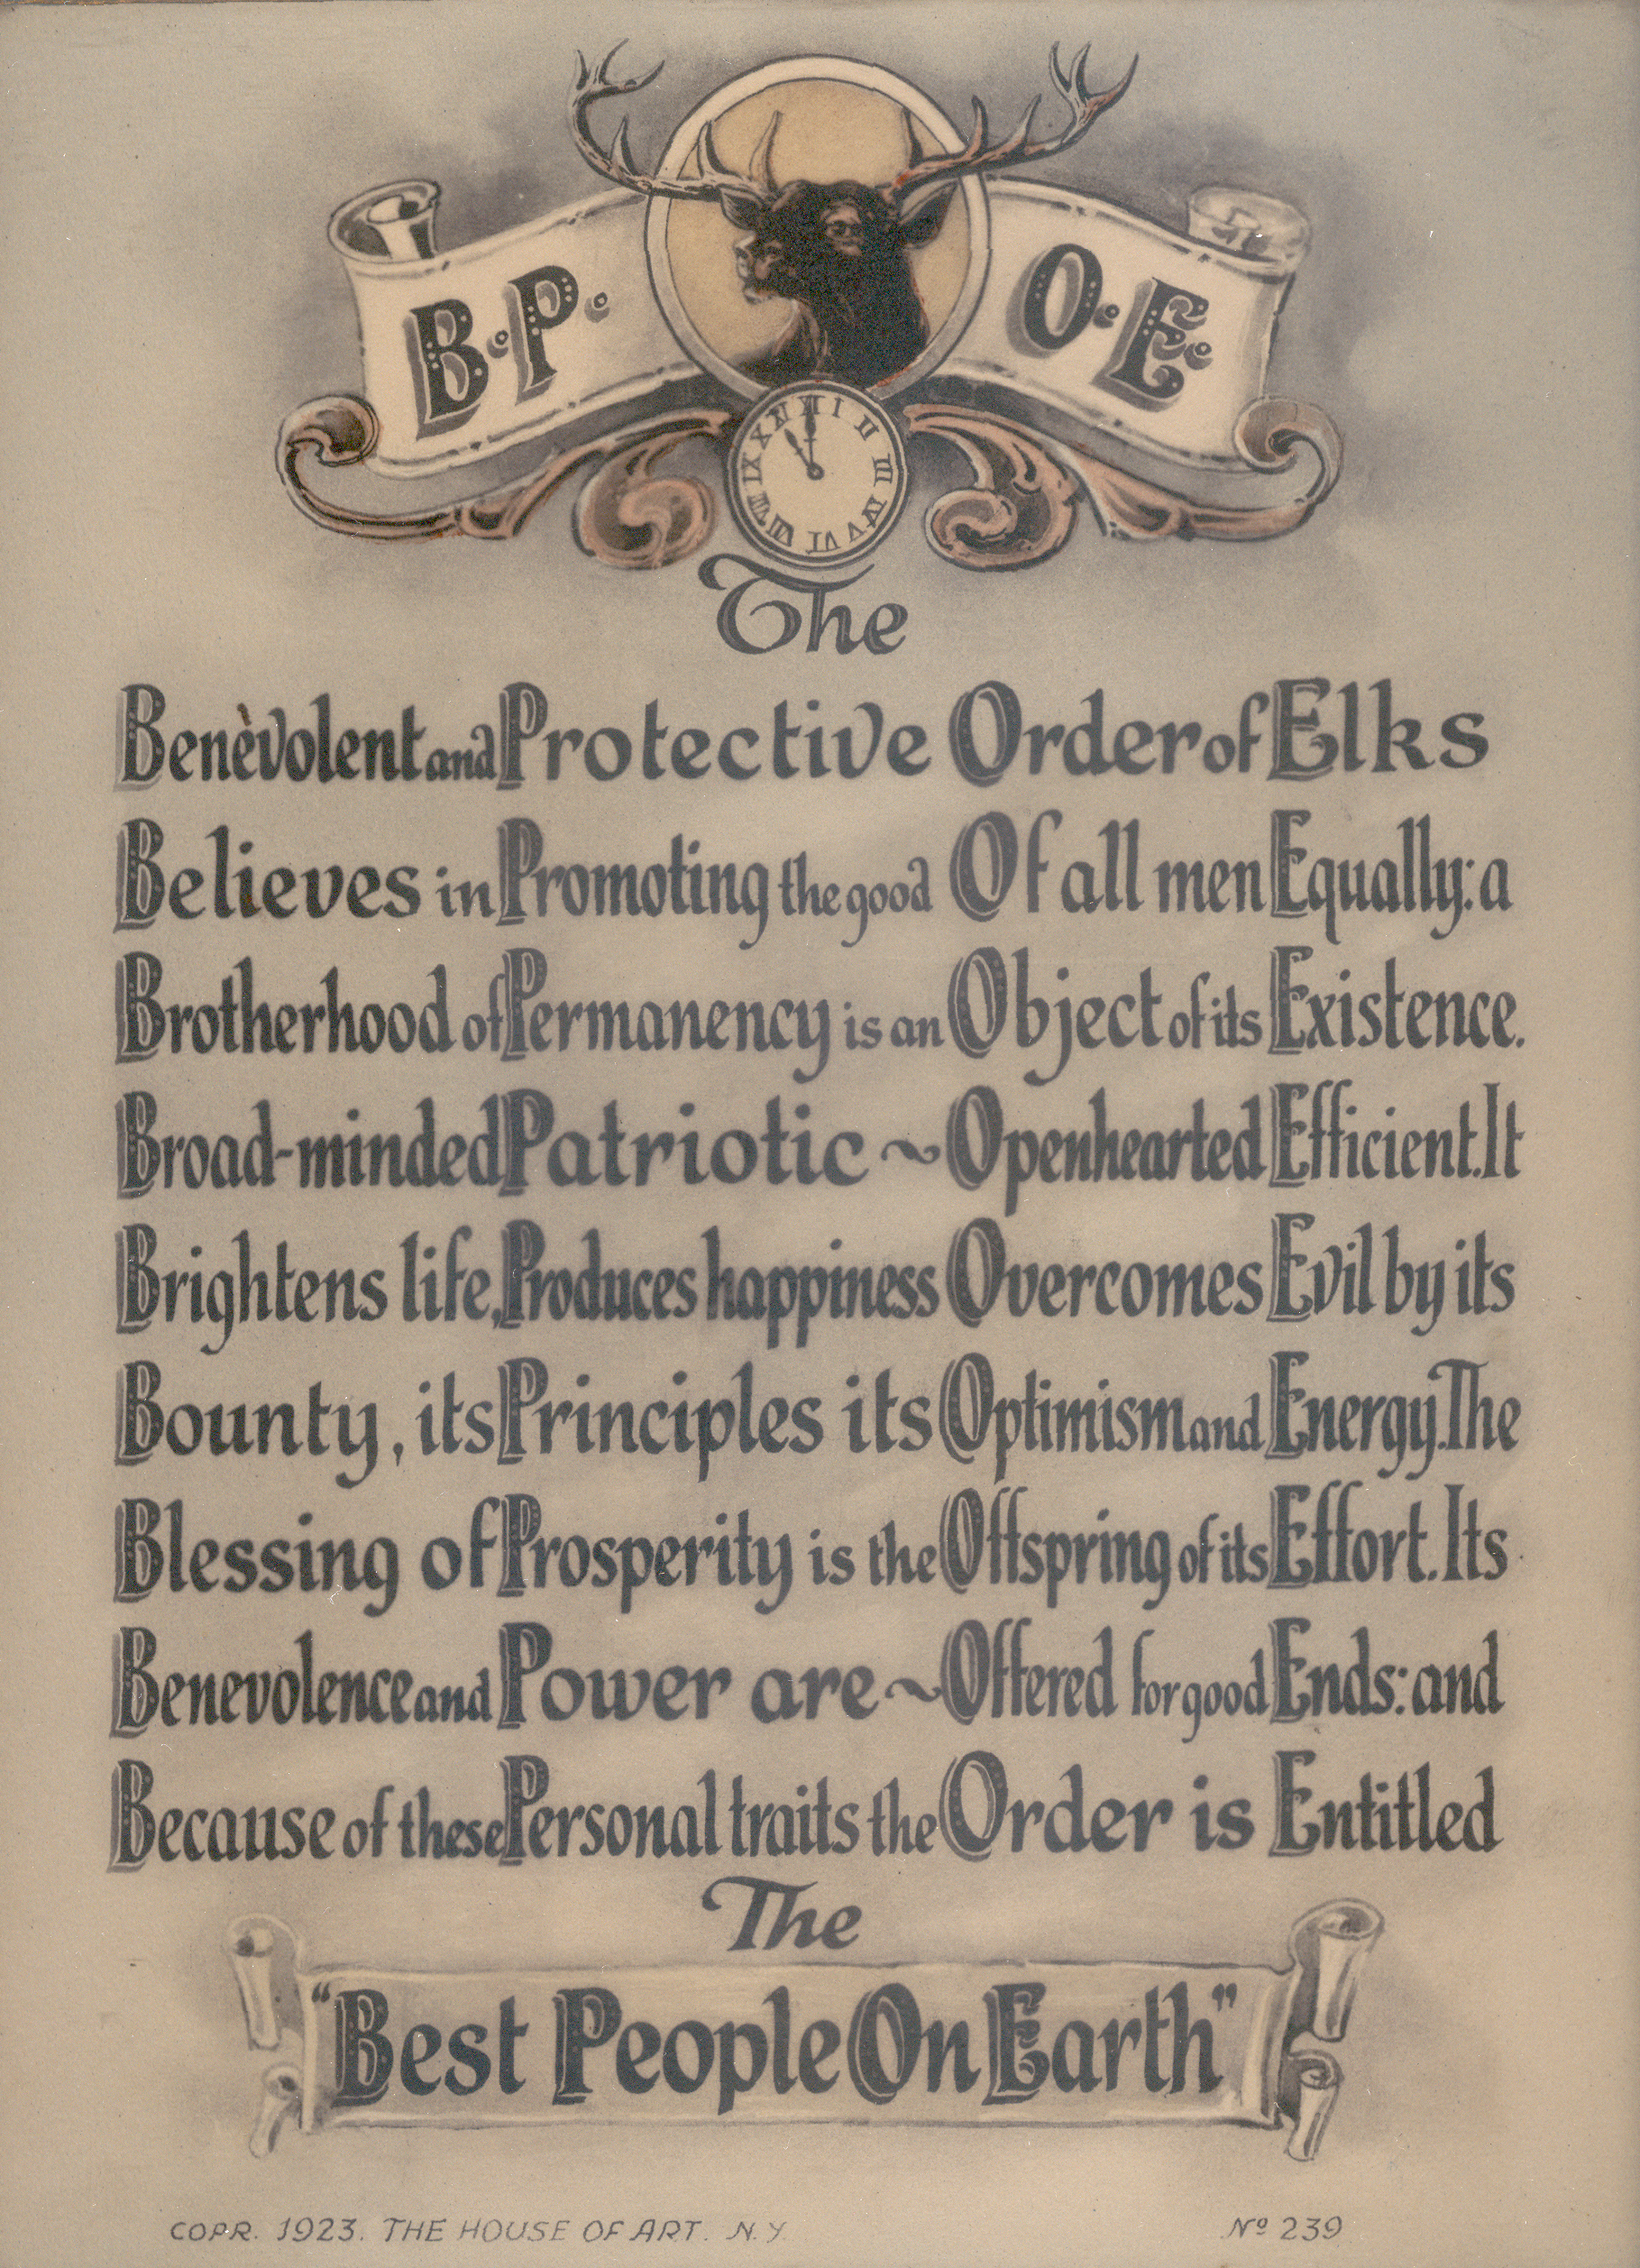 B. P. O. E.
XII I II III IV V VI VII VIII IX X XI
The
Benèvolent and Protective Order of Elks
Believes in Promoting the good Of all men Equally: a
Brotherhood of Permanency is an Object of its Existence.
Broad-minded Patriotic ~ Openhearted Efficient. It
Brightens life, Produces happiness Overcomes Evil by its
Bounty, its Principles its Optimism and Energy. The
Blessing of Prosperity is the Offspring of its Effort. Its
Benevolence and Power are ~ Offered for good Ends: and
Because of these Personal traits the Order is Entitled
The
"Best People On Earth"
COPR. 1923. THE HOUSE OF ART. N.Y. Nº 239